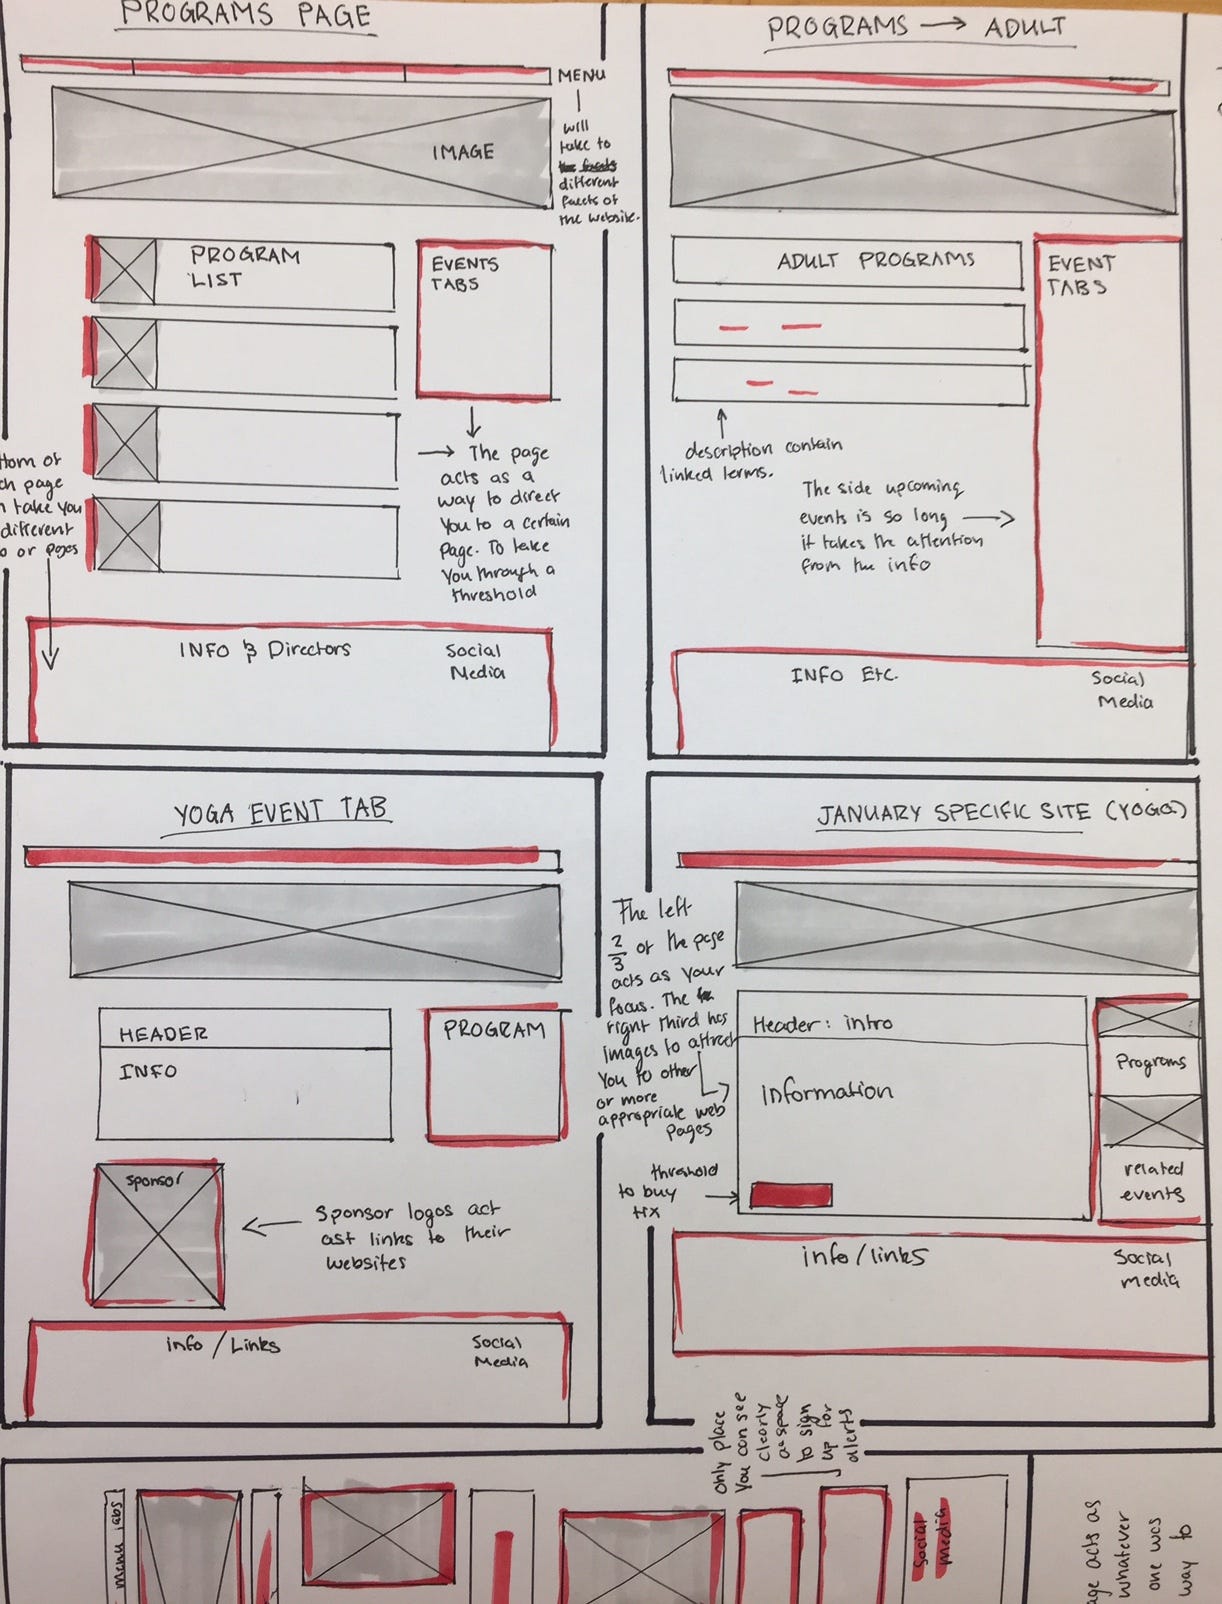 PROGRAMS PAGE
MENU
will
take to
different
facets of
the website.
IMAGE
PROGRAM
LIST
EVENTS
TABS
→ The page
acts as a
way to direct
you to a certain
page. To take
you through a
threshold
ttom of
ch page
n take you
different
o or pages
INFO & Directors
Social
Media
PROGRAMS → ADULT
ADULT PROGRAMS
EVENT
TABS
description contain
linked terms.
The side upcoming
events is so long →
it takes the attention
from the info
INFO Etc.
Social
Media
YOGA EVENT TAB
HEADER
INFO
PROGRAM
Sponsor
Sponsor logos act
ast links to their
websites
info / Links
Social
Media
JANUARY SPECIFIC SITE (YOGA)
The left
2/3 of the page
acts as your
focus. The
right third has
images to attract
you to other
or more
appropriate web
pages
Header: intro
information
Programs
related
events
threshold
to buy
tix
info/links
Social
media
only place
you can see
clearly
a space
to sign
up for
alerts
menu tabs
Social
media
age acts as
whatever
one was
way to